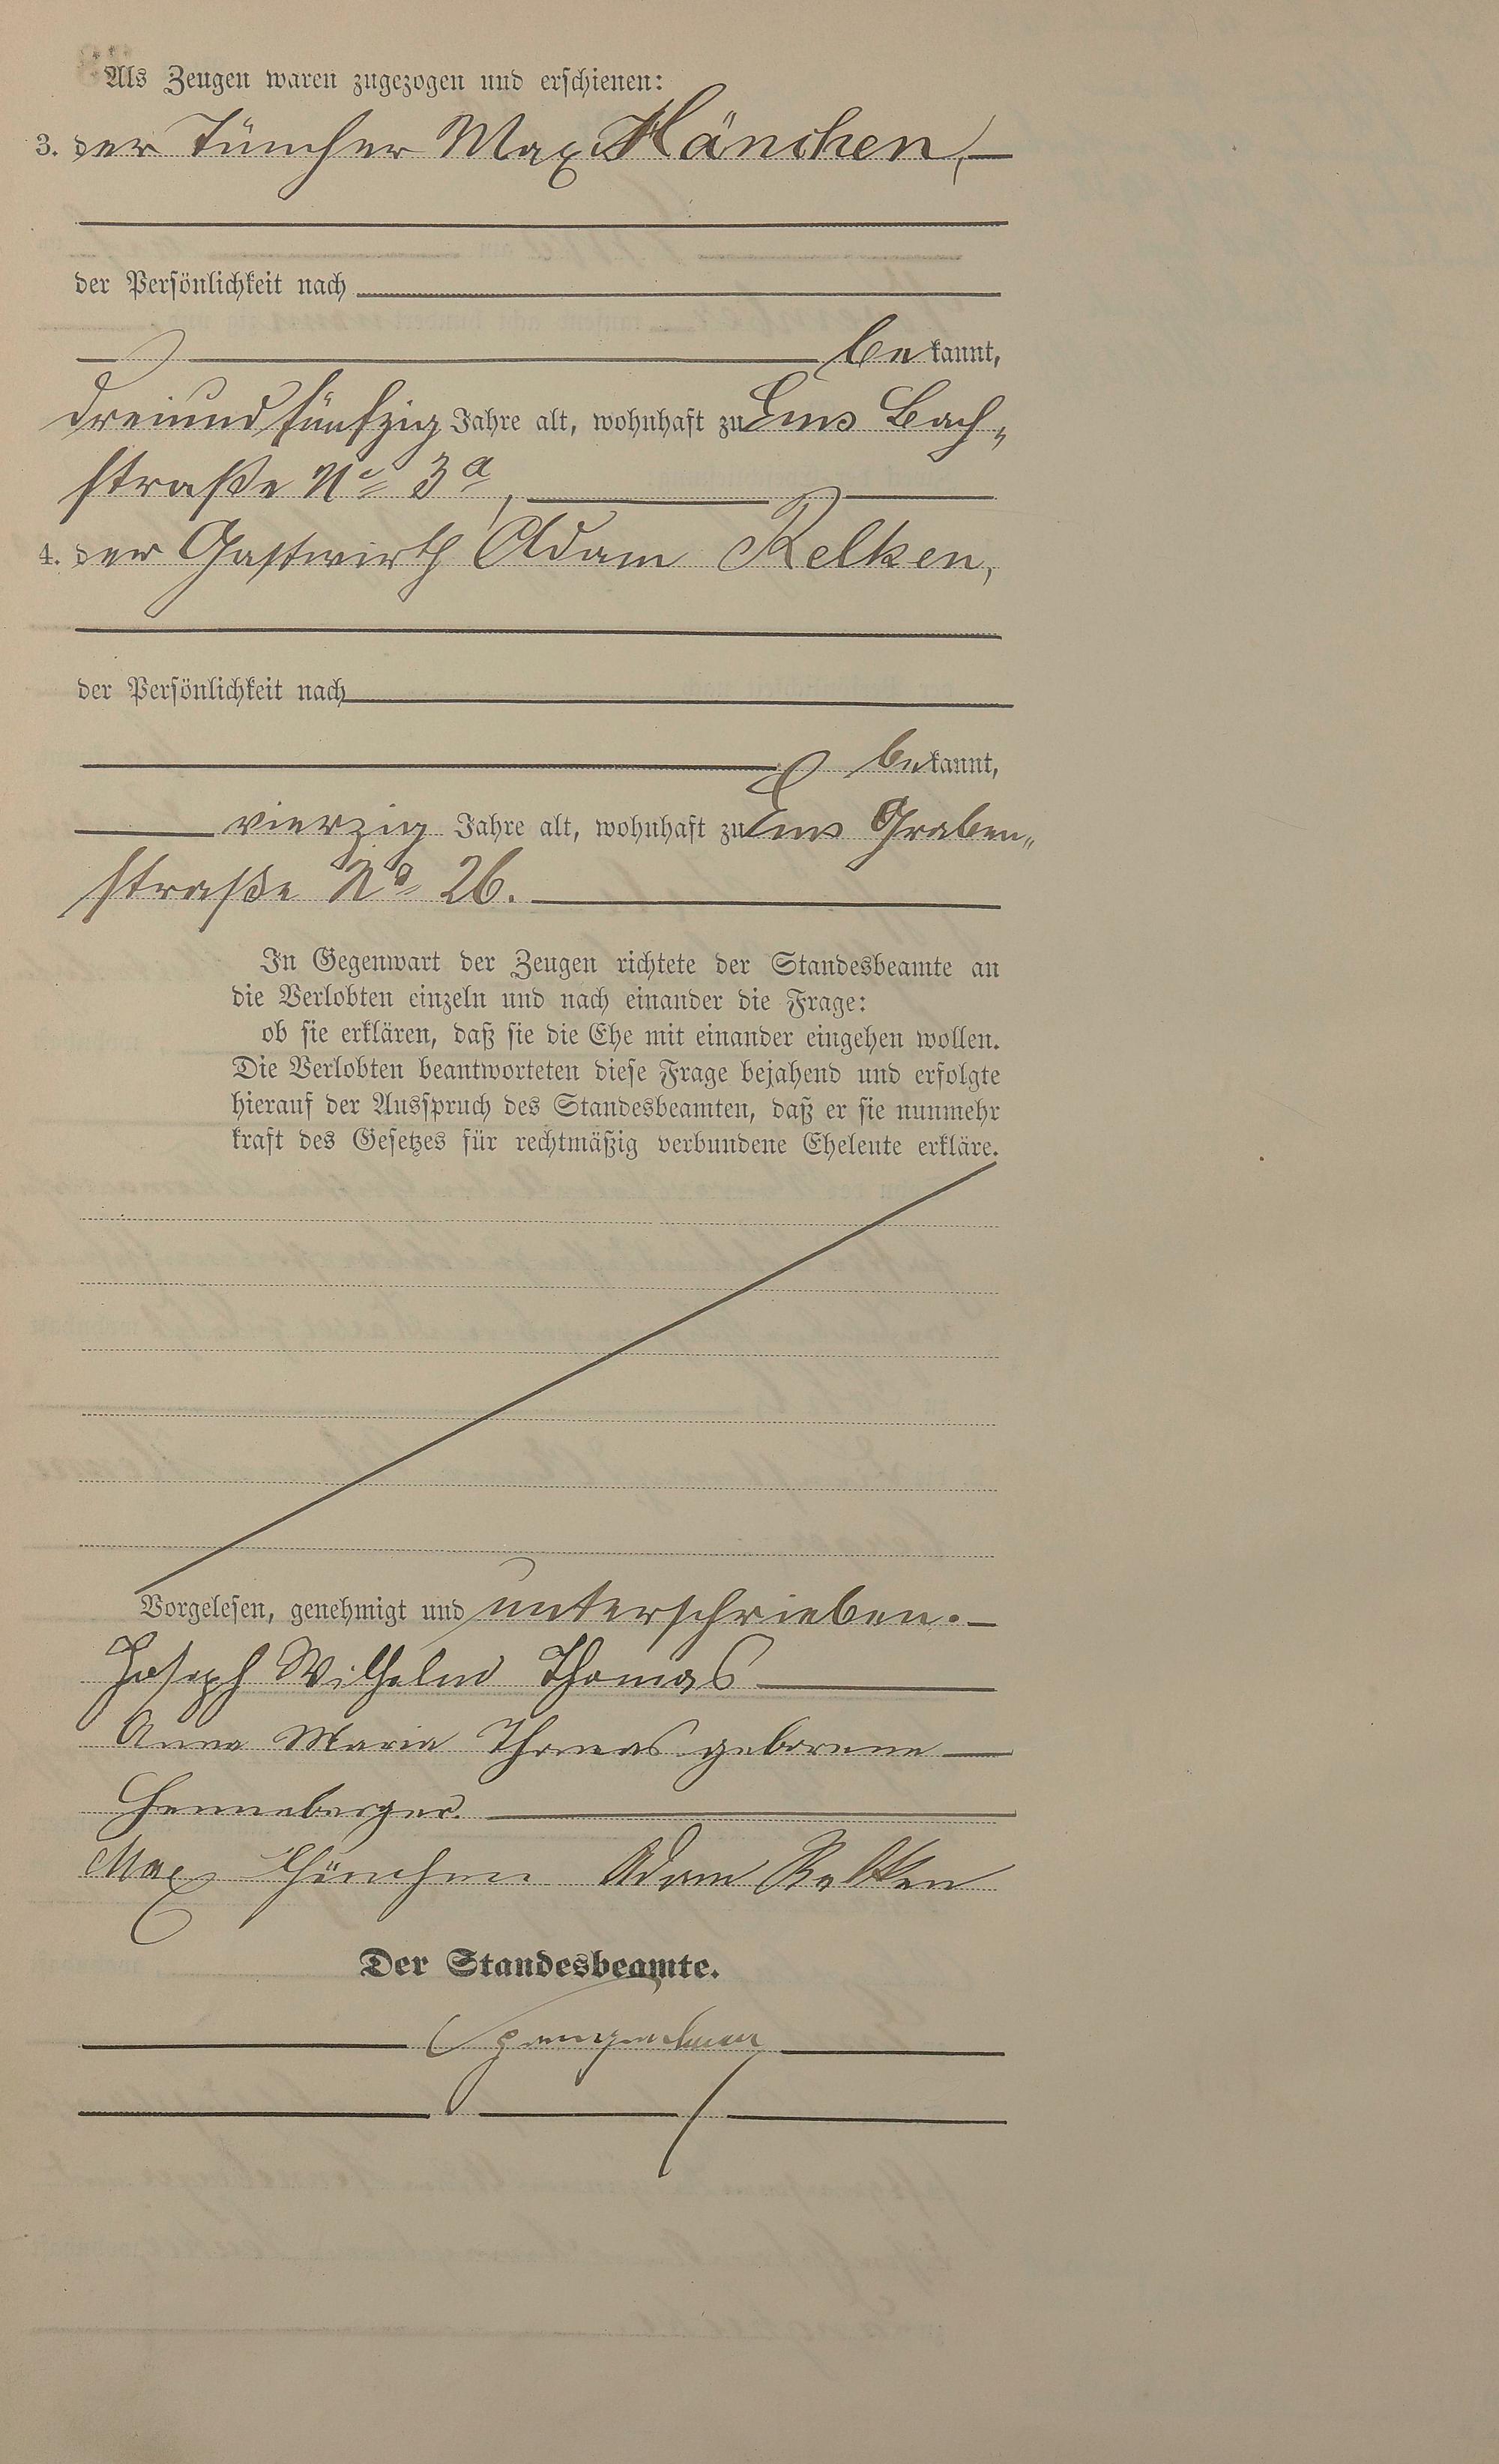 Als Zeugen waren zugezogen und erschienen:
3. der Tüncher Max Hänchen,
der Persönlichkeit nach
bekannt,
dreiundfünfzig Jahre alt, wohnhaft zu Ems Bach„
straße No 3a,
4. der Gastwirth Adam Relken,
der Persönlichkeit nach
bekannt,
vierzig Jahre alt, wohnhaft zu Ems Graben„
straße No 26.
In Gegenwart der Zeugen richtete der Standesbeamte an
die Verlobten einzeln und nach einander die Frage:
ob sie erklären, daß sie die Ehe mit einander eingehen wollen.
Die Verlobten beantworteten diese Frage bejahend und erfolgte
hierauf der Ausspruch des Standesbeamten, daß er sie nunmehr
kraft des Gesetzes für rechtmäßig verbundene Eheleute erkläre.
Vorgelesen, genehmigt und unterschrieben.
Joseph Wilhelm Thomas
Anna Maria Thomas geborene
Henneberger.
Max Hänchen Adam Relken
Der Standesbeamte.